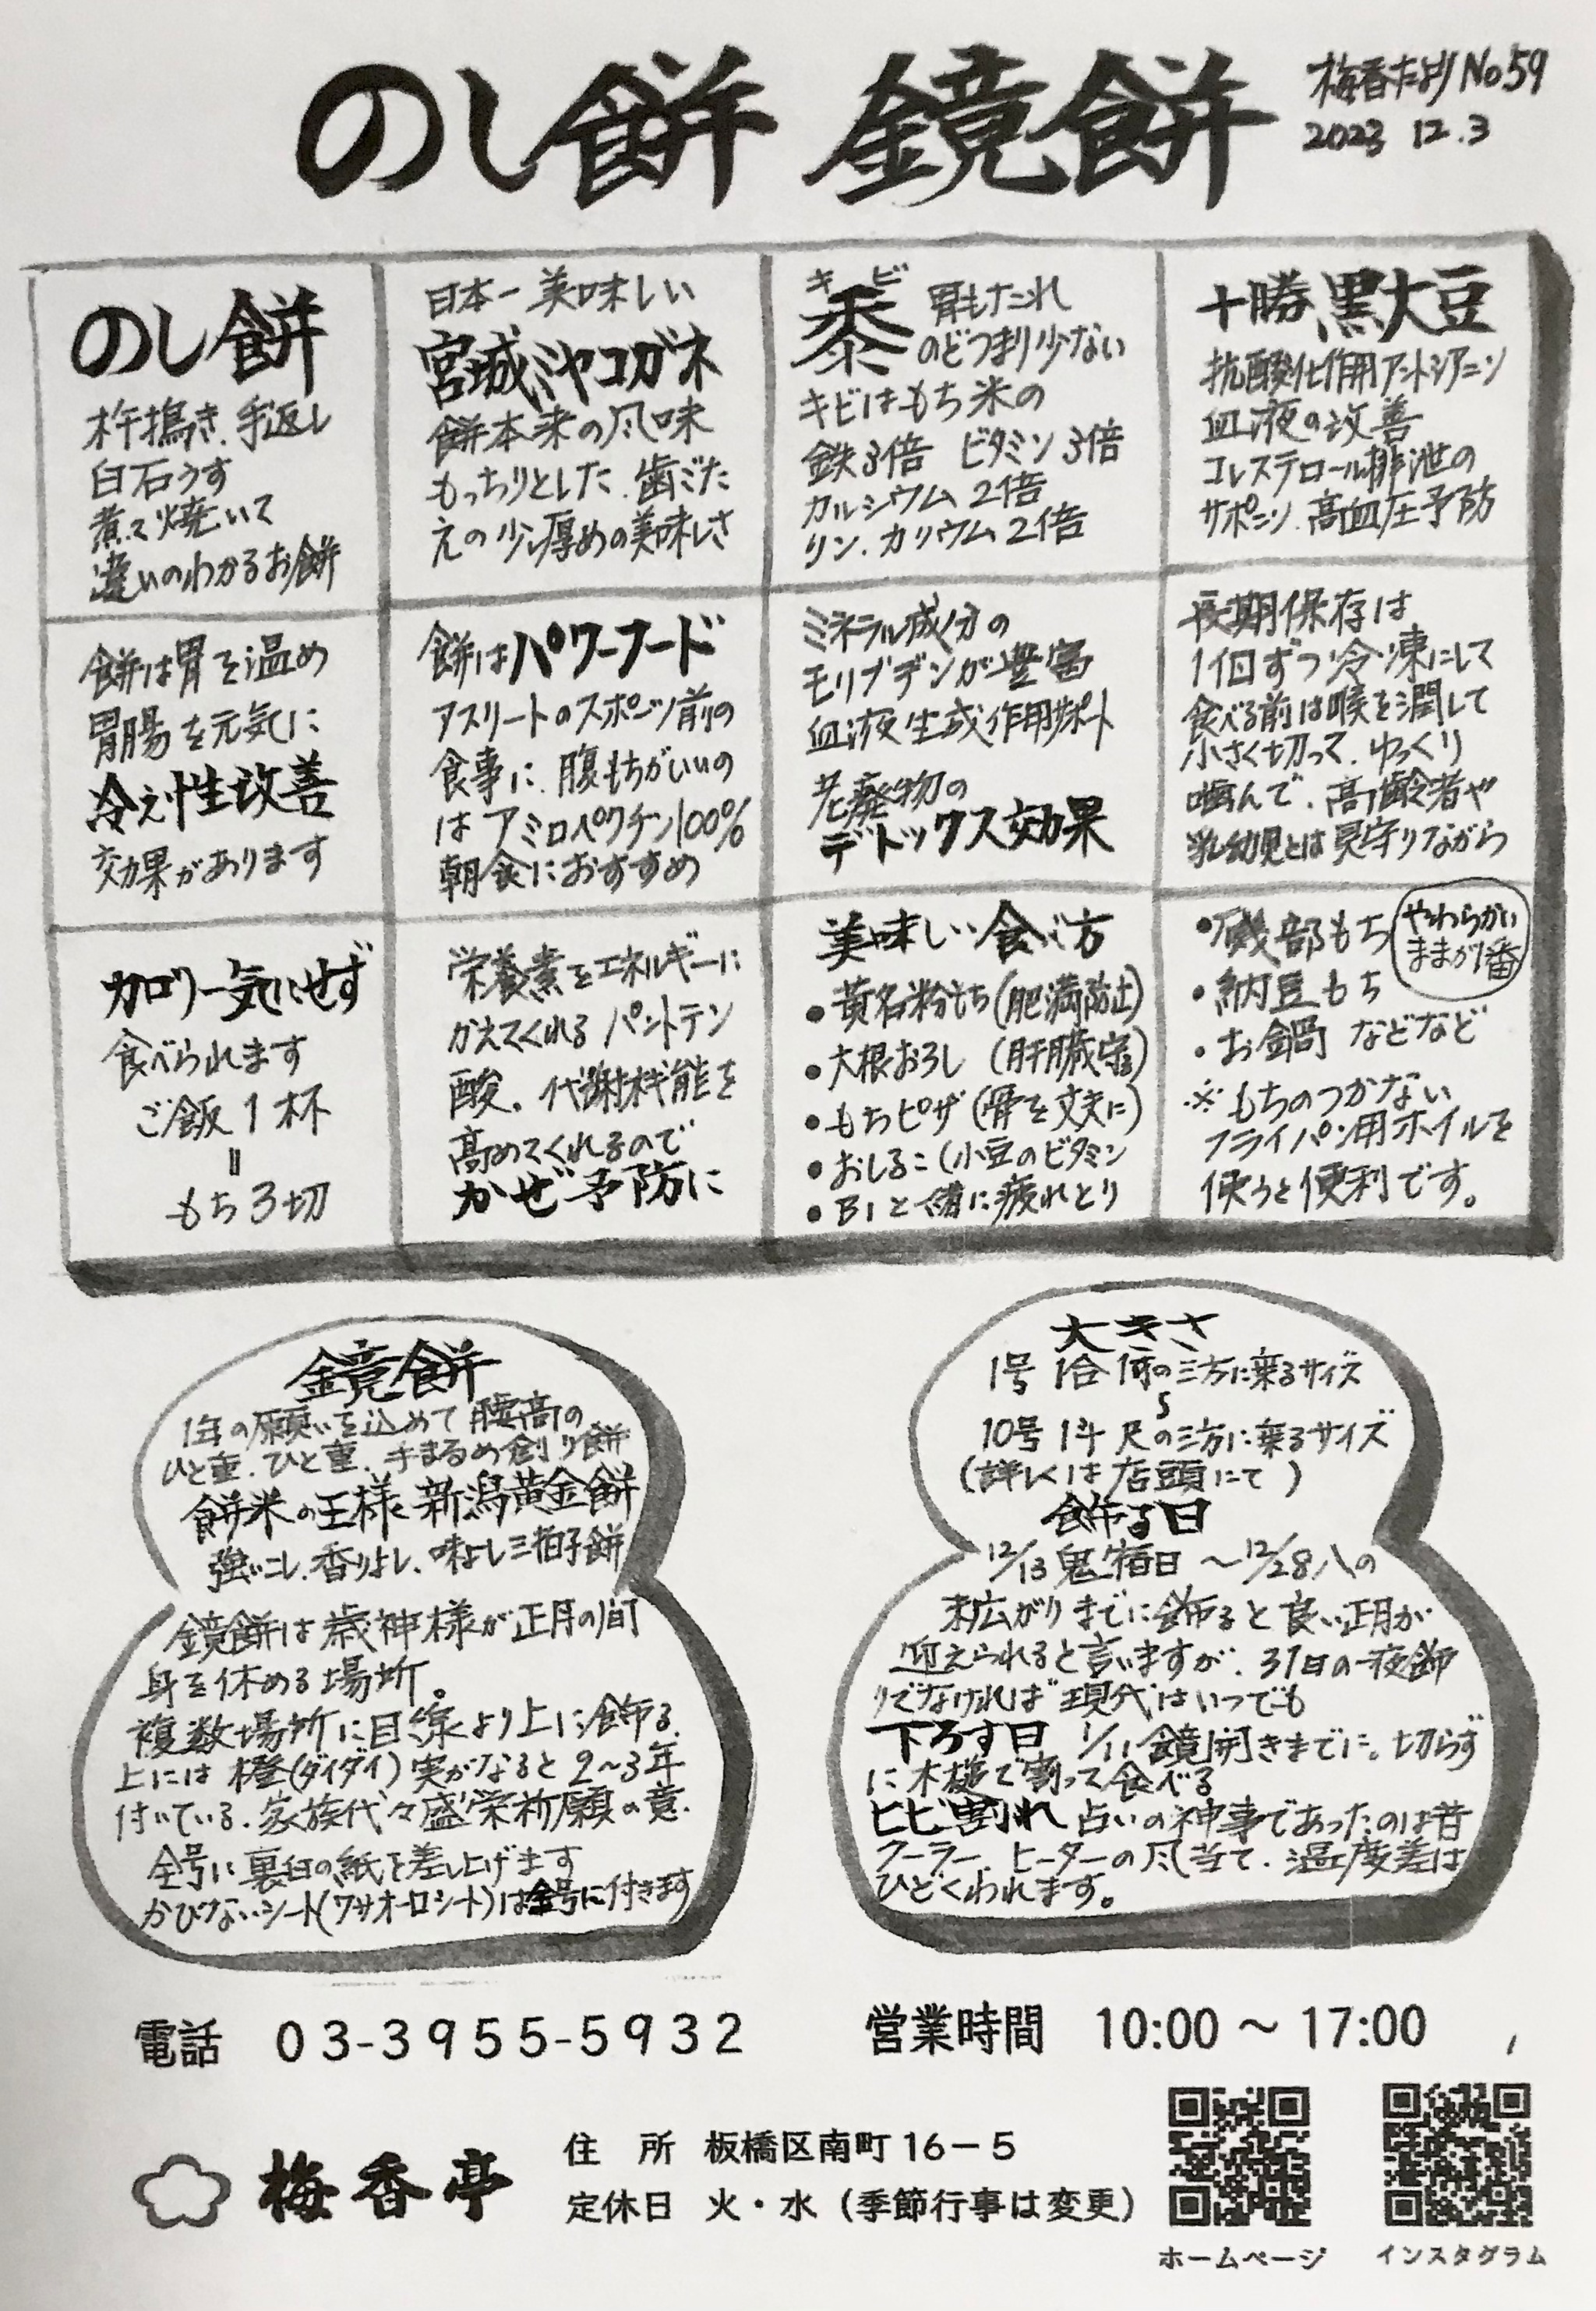 のし餅 鏡餅
梅香だより No59
2023 12.3
のし餅
杵搗き、手返し
臼石うす
煮て焼いて
違いのわかるお餅
日本一美味しい
宮城ミヤコガネ
餅本来の風味
もっちりとした、歯ごた
えの少し厚めの美味しさ
キビ
黍 胃もたれ
のどつまり少ない
キビはもち米の
鉄3倍 ビタミン3倍
カルシウム2倍
リン、カリウム2倍
十勝黒大豆
抗酸化作用アントシアニン
血液の改善
コレステロール排泄の
サポニン、高血圧予防
餅は胃を温め
胃腸を元気に
冷え性改善
効果があります
餅はパワーフード
アスリートのスポーツ前の
食事に、腹もちがいいの
はアミロペクチン100%
朝食におすすめ
ミネラル成分の
モリブデンが豊富
血液生成作用サポート
老廃物の
デトックス効果
長期保存は
1個ずつ冷凍にして
食べる前は喉を潤して
小さく切って、ゆっくり
噛んで、高齢者や
乳幼児とは見守りながら
カロリー気にせず
食べられます
ご飯1杯
＝
もち3切
栄養素をエネルギーに
かえてくれるパントテン
酸、代謝機能を
高めてくれるので
かぜ予防に
美味しい食べ方
•黄名粉もち(肥満防止)
•大根おろし (肝臓守る)
•もちピザ(骨を丈夫に)
•おしるこ(小豆のビタミン
•B1と一緒に疲れとり
•磯部もち
やわらかい
ままが1番
•納豆もち
•お鍋 などなど
※もちのつかない
フライパン用ホイルを
使うと便利です。
鏡餅
1年の願いを込めて腰高の
ひと重、ひと重、手まるめ創り餅
餅米の王様 新潟黄金餅
強いコシ、香りよし、味よし三拍子餅
鏡餅は歳神様が正月の間
身を休める場所。
複数場所に目線より上に飾る、
上には橙(ダイダイ)実がなると2~3年
付いている、家族代々盛栄祈願の意、
全号に裏白の紙を差し上げます
かびないシート(ワサオーロシート)は全号に付きます
大きさ
1号 1合 1何の三方に乗るサイズ
〜
10号 1斗 尺の三方に乗るサイズ
(詳しくは店頭にて)
飾る日
12/13鬼宿日 ～12/28八の
末広がりまでに飾ると良い正月が
迎えられると言いますが、31日の一夜飾
りでなければ現代はいつでも
下ろす日 1/11鏡開きまでに。切らず
に木槌で割って食べる
ヒビ割れ 占いの神事であったのは昔
クーラー、ヒーターの風当て、温度差は
ひどくわれます。
電話 03-3955-5932
営業時間 10:00 ～ 17:00
梅香亭
住 所 板橋区南町16－5
定休日 火・水（季節行事は変更）
ホームページ
インスタグラム